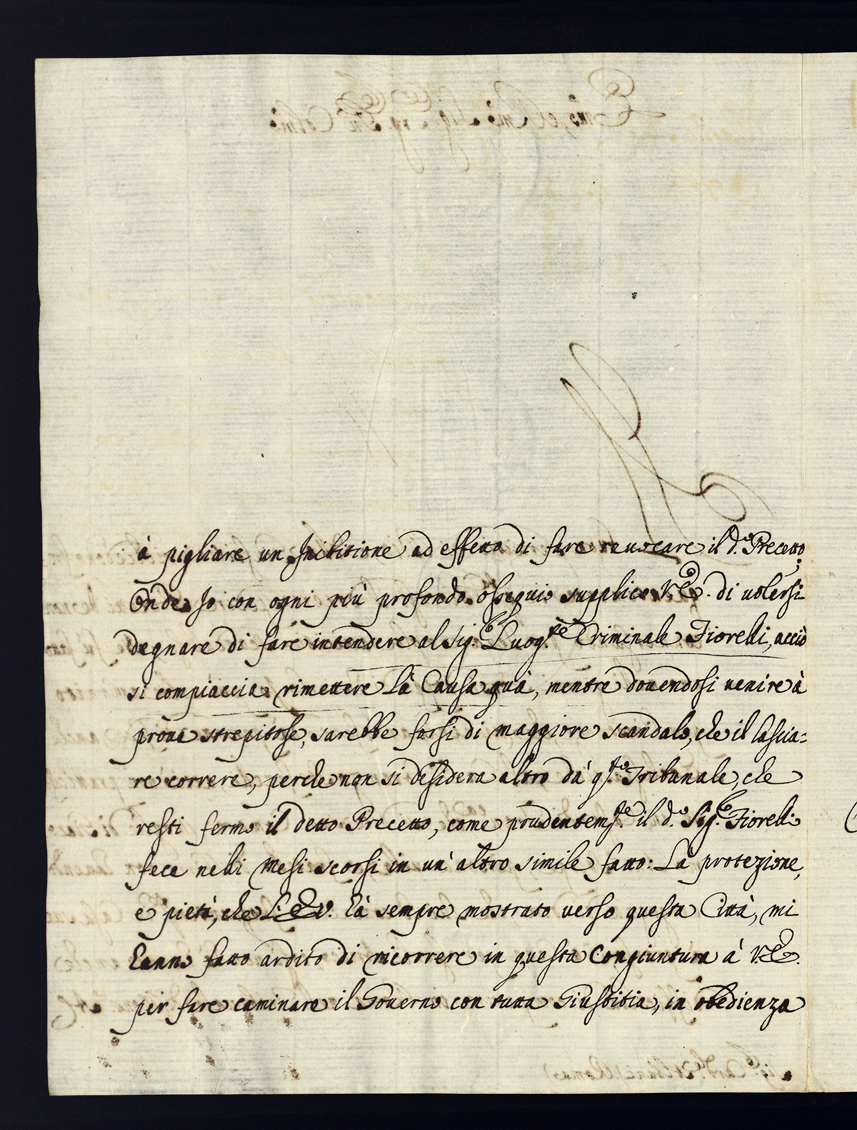 à pigliare un Inibitione ad effetto di fare revocare il d.º Precetto,
Onde Io con ogni più profondo ossequio supplico V.E. di volersi
degnare di fare intendere al Sig.r Luog.te Criminale Fiorelli, acciò
si compiaccia rimettere la Causa quà, mentre dovendosi venire à
prove strepitose, sarebbe forsi di maggiore scandalo, che il lascia=
re correre, perche non si desidera altro da q.to Tribunale, che
resti fermo il detto Precetto, come prudentem.te il d.º Sig.r Fiorelli
fece nelli mesi scorsi in un' altro simile fatto: La protezione,
e pietà, che l'E.V. hà sempre mostrato verso questa Città, mi
hanno fatto ardito di ricorrere in questa Congiuntura à V.E.
per fare caminare il Governo con tutta Giustitia, in obedienza